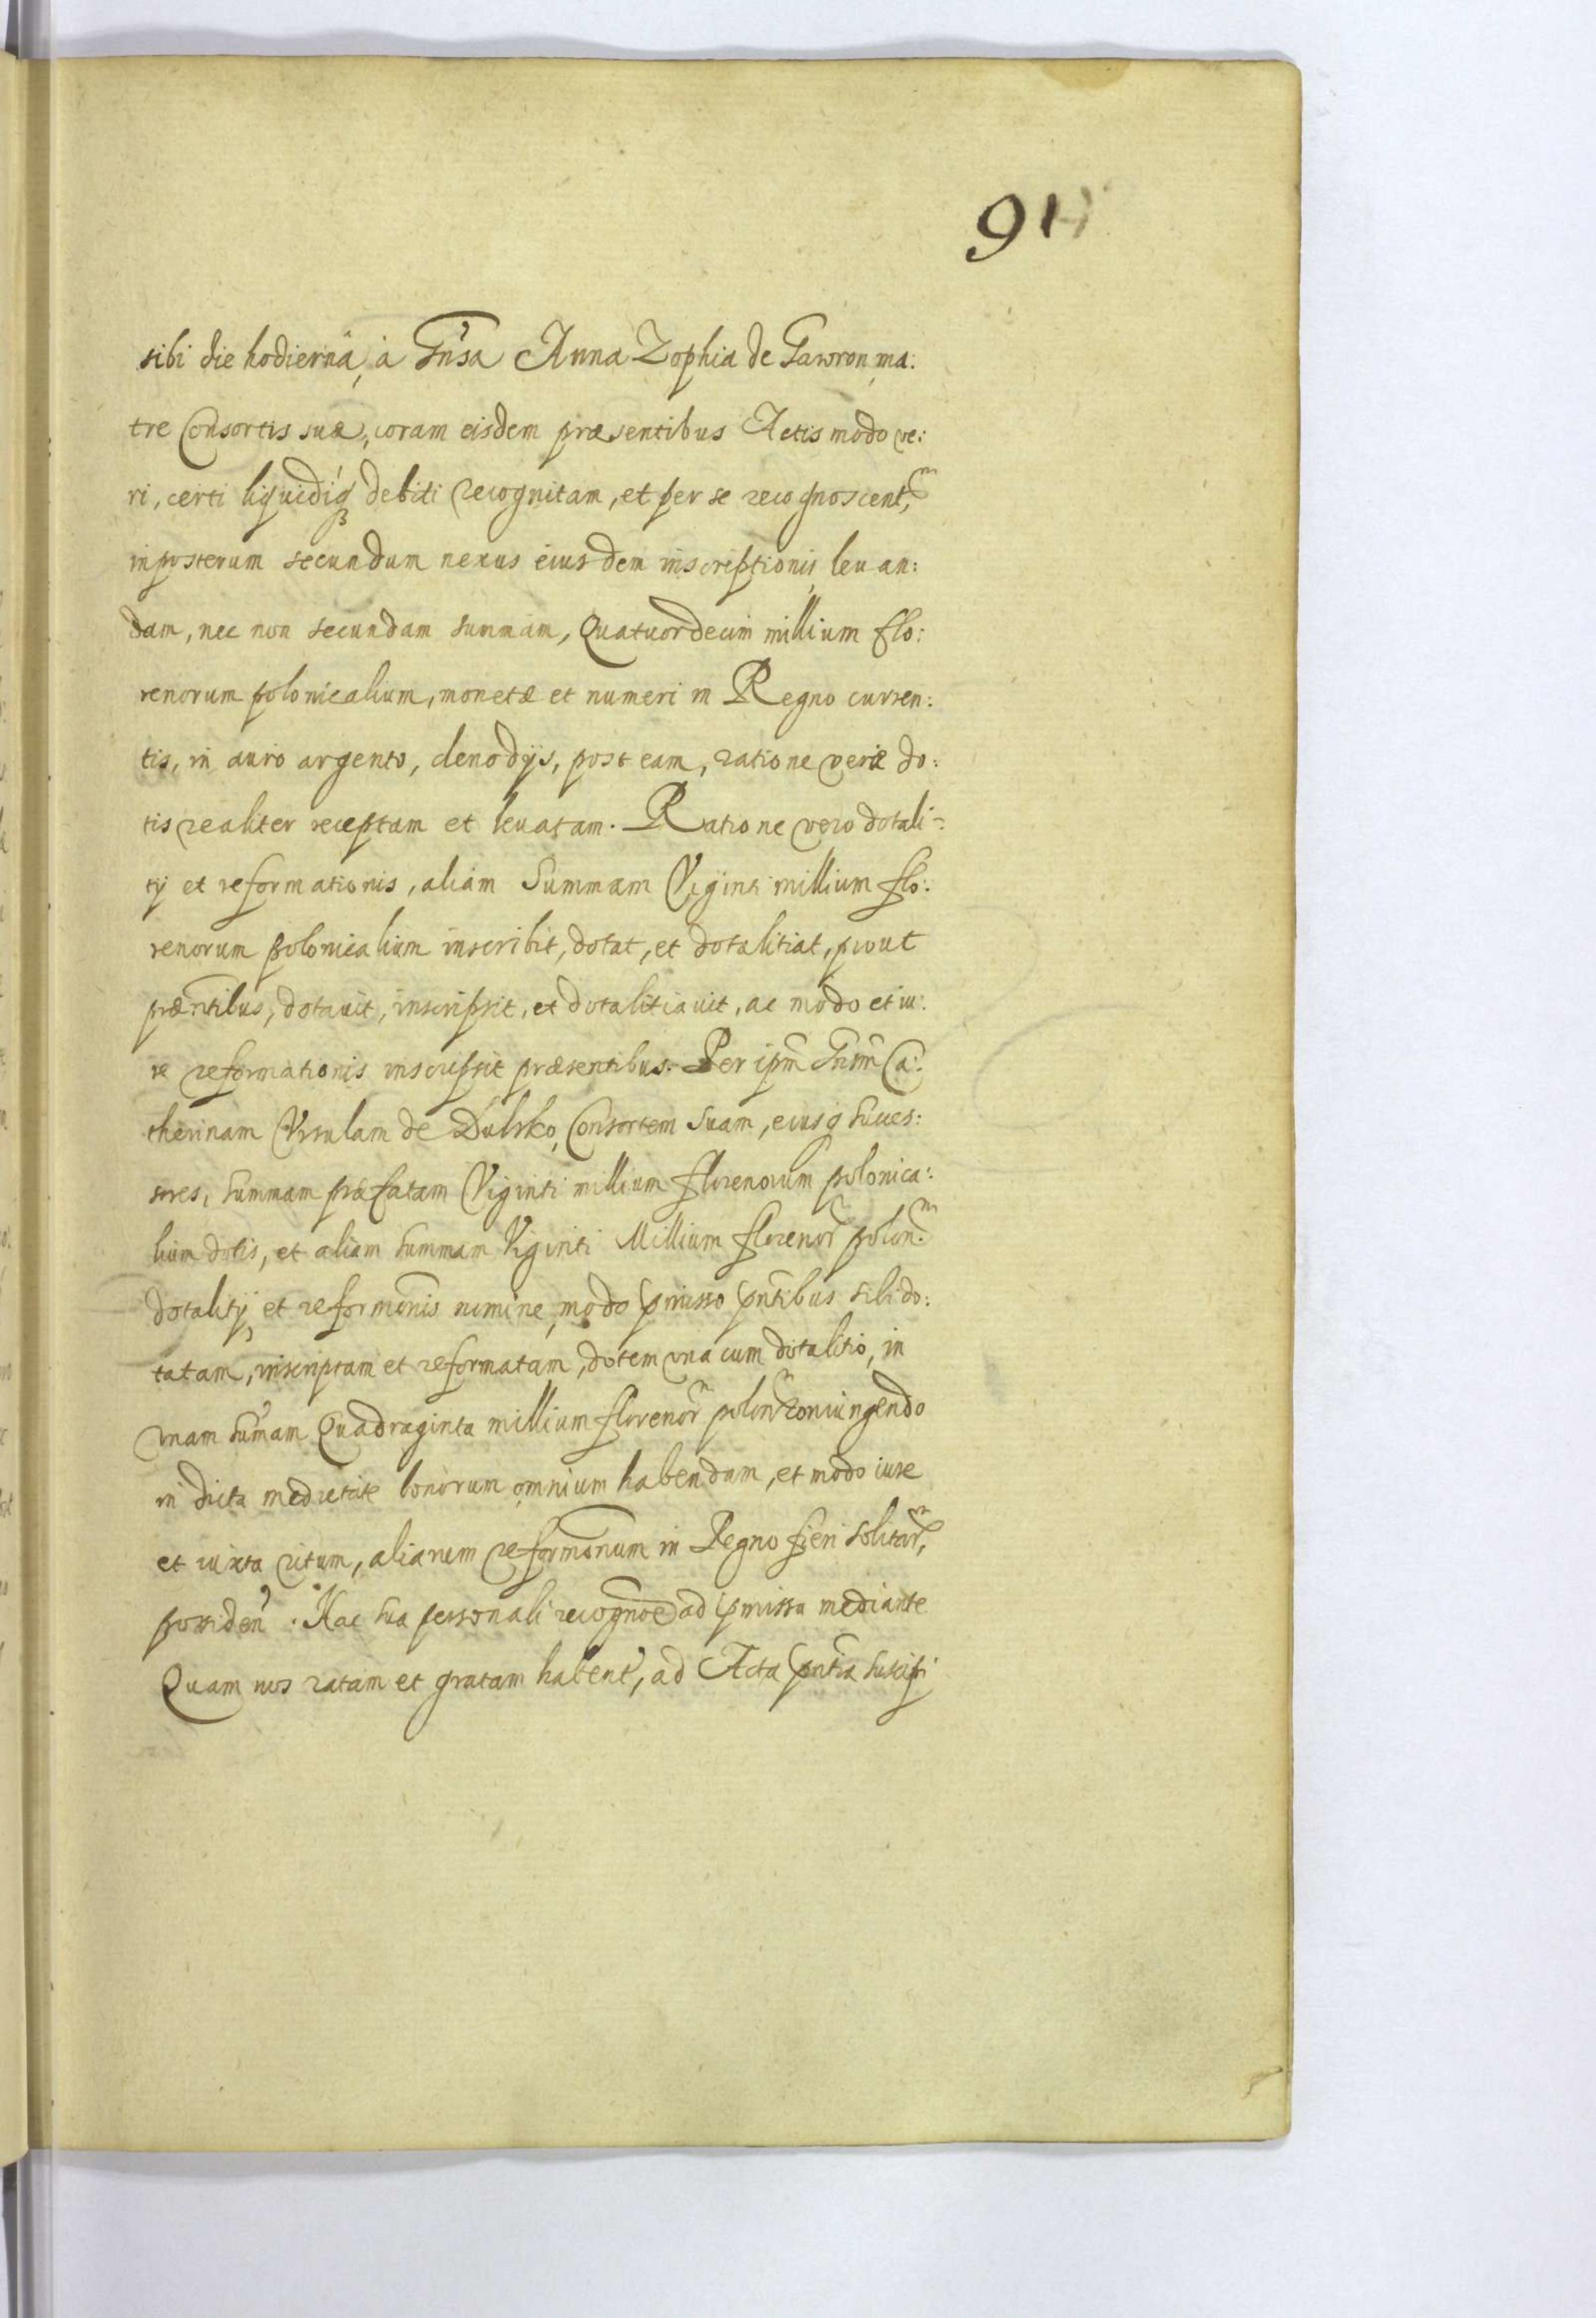 91
sibi die hodiernâ, à Gn̄sa Anna Zophia de Gawron, ma:
tre Consortis suæ, coram eisdem præsentibus Actis modo ve:
ri, certi liquidiq₃ debiti recognitam, et per se recognoscent,ᵐ
inposterum secundum nexus eiusdem inscriptionis leuan:
dam, nec non secundam summam, Quatuordecim millium flo:
renorum polonicalium, monetæ et numeri in Regno curren:
tis, in auro argento, clenodijs, post eam, ratione veræ do:
tis realiter receptam et leuatam. Ratione vero dotali:
tij et reformationis, aliam Summam Viginti millium flo:
renorum polonicalium inscribit, dotat, et dotalitiat, prout
præn̄tibus, dotauit, inscripsit, et dotalitiauit, ac modo et iu:
re reformationis inscripsit præsentibus. Per ipm̄ Gn̄sm̄ Ca:
therinam Vrsulam de Dulsko, Consortem Suam, eiusq succes:
sores, summam præfatam Viginti millium florenorum polonica:
lium dotis, et aliam summam Viginti Millium florenor̄ polon:ᵐ
dotalitij et reformōnis nomine, modo p̄misso pn̄tibus sibi do:
tatam, inscriptam et reformatam, dotem vna cum dotalitio, in
vnam sum̄am Quadraginta millium florenor̄ polon̄ coniungendo
in dicta medietate bonorum omnium habendam, et modo iure
et iuxta ritum, aliarum reformōnum in Regno fieri solitar̄,ᵐ
possiden̄. Hac sua personali recognōe ad p̄missa mediante
Quam nos ratam et gratam haben̄t, ad Acta pn̄tia suscipi